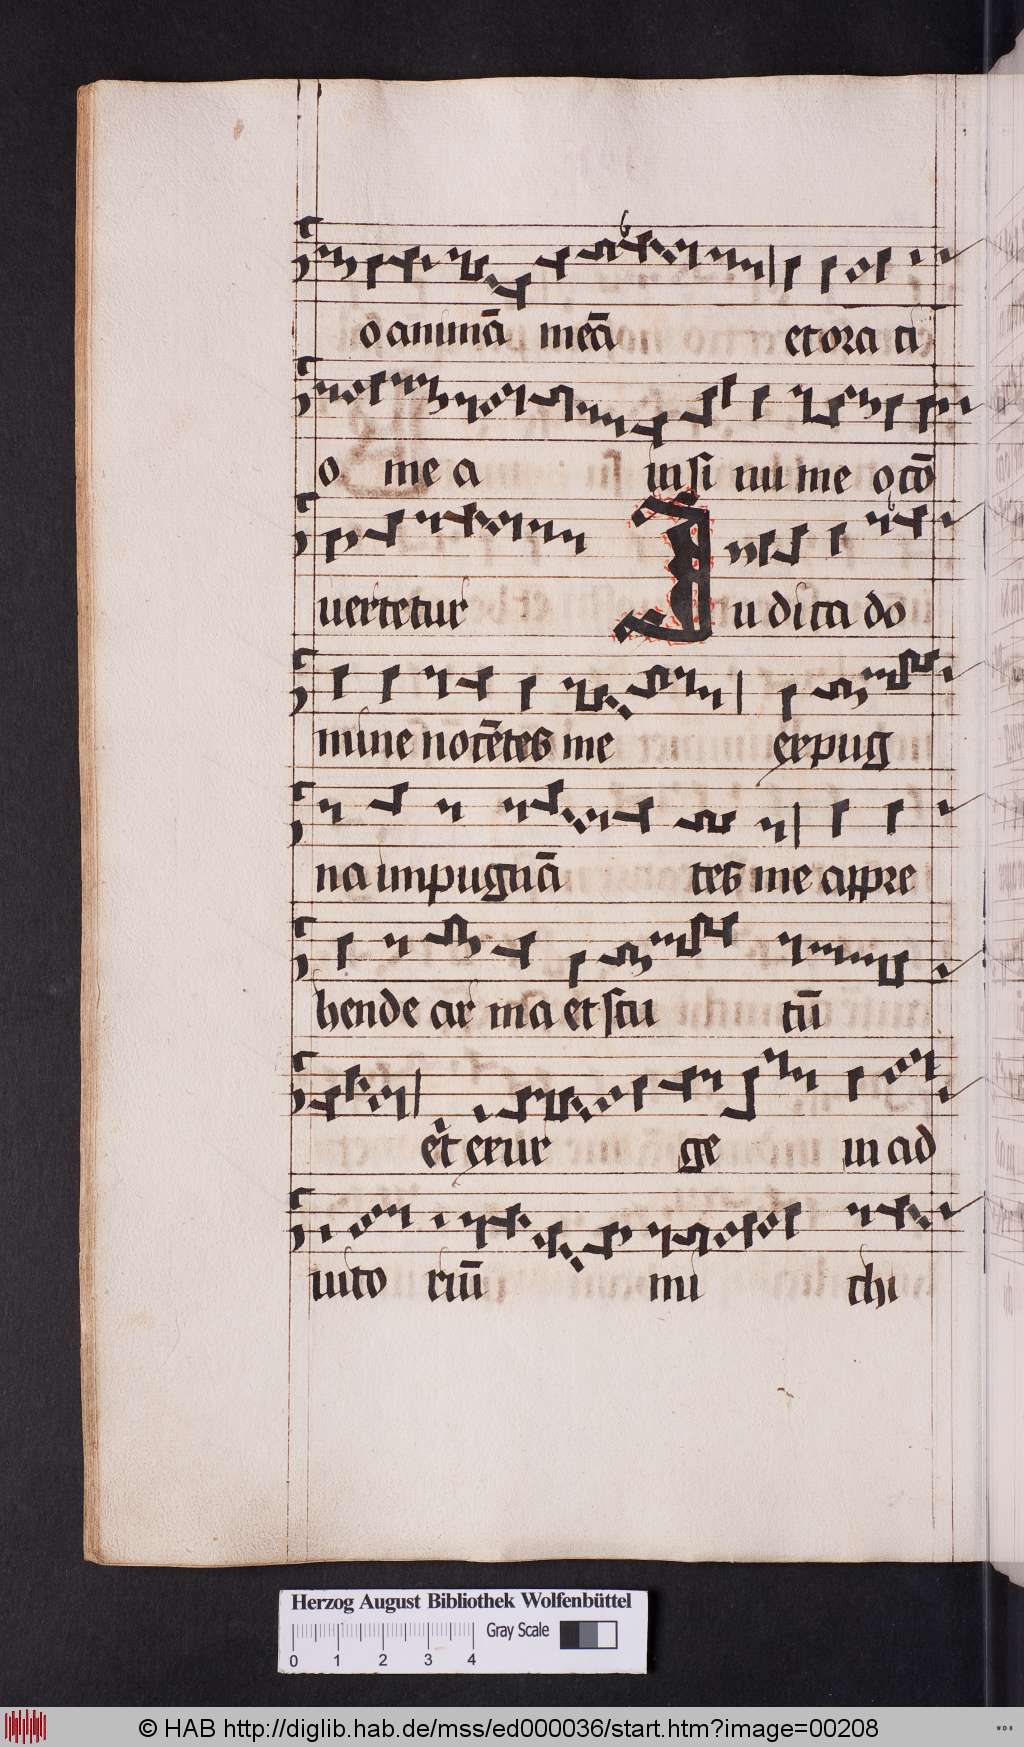 o animā meā et ora ti
o me a in si nu me o cō
uertetur Iu dica do
mine nocētes me expug
na impugnā tes me appre
hende ar ma et scu tū
et exur ge in ad
iuto riū mi chi
Herzog August Bibliothek Wolfenbüttel
Gray Scale
0 1 2 3 4
© HAB http://diglib.hab.de/mss/ed000036/start.htm?image=00208